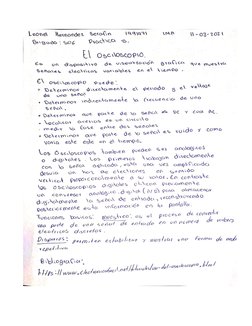 Leonel Hernandez Serafin 1991071 IMA 11-03-2021
Brigada: 506 Practica 5.
El osciloscopio.
Es un dispositivo de visualización grafica que muestra
señales electricas variables en el tiempo.
El osciloscopio puede:
• Determinar directamente el periodo y el voltaje
de una señal
• Determinar indirectamente la frecuencia de una
señal.
• Determinar que parte de la señal es DC y cual AC
• Localizar averias en un circuito
• medir la fase entre dos señales
• Determinar que parte de la señal es ruido y como
varia este en el tiempo.
Los Osciloscopios tambien pueden ser analogicos
o digitales. Los primeros trabajan directamente
con la señal aplicada, esta una vez amplificada
desvia un haz de electrones en sentido
vertical proporcionalmente a su valor. En contraste
los osciloscopios digitales utilizan previamente
un conversor analogico digital (A/D) para almacenar
digitalmente la señal de entrada, reconstruyendo
posteriormente esta información en la pantalla.
Funciones basicas: muestreo: es el proceso de convertir
una parte de una señal de entrada en un numero de valores
electricos discretos.
Disparos: permiten estabilizar y mostrar una forma de onda
repetitiva
Bibliografia: